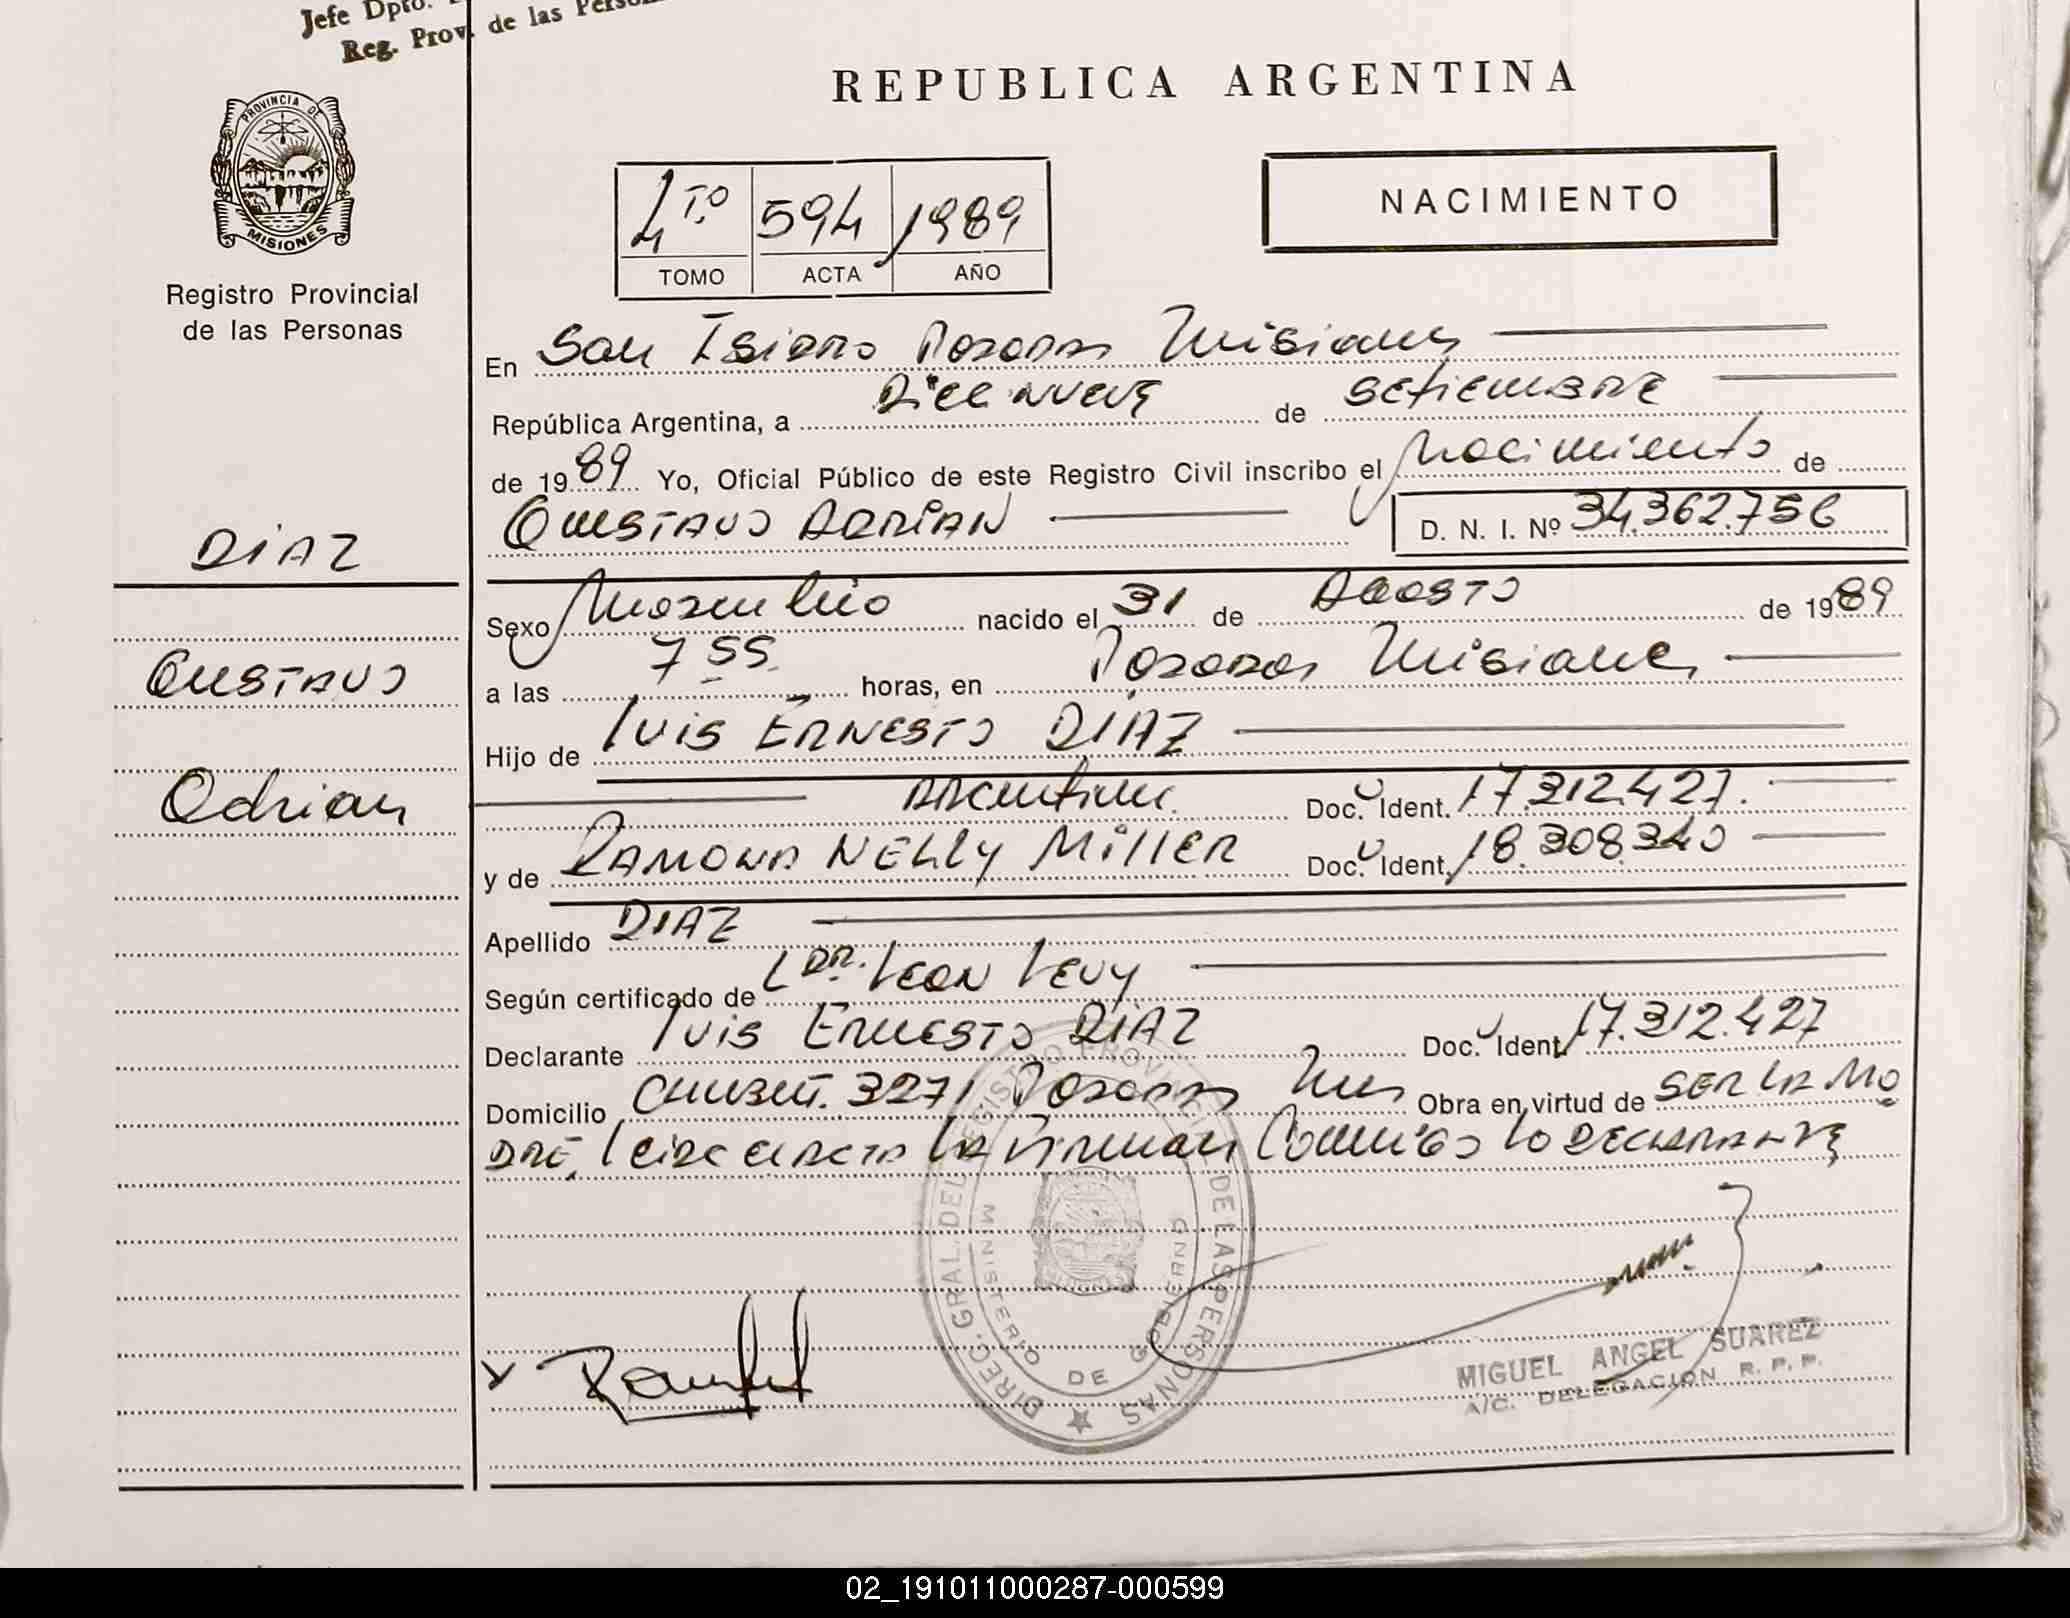 Jefe Dpto.
Reg. Prov. de las Person
REPUBLICA ARGENTINA
PROVINCIA DE
MISIONES
Registro Provincial
de las Personas
4 TO 594 1989
TOMO ACTA AÑO
NACIMIENTO
En San Isidro Posadas Misiones
República Argentina, a Diecinueve de Setiembre
de 1989 Yo, Oficial Público de este Registro Civil inscribo el Nacimiento de
GUSTAVO ADRIAN D. N. I. Nº 34.362.756
DIAZ
GUSTAVO
Adrian
Sexo Masculino nacido el 31 de AGOSTO de 1989
a las 7 55 horas, en Posadas Misiones
Hijo de LUIS ERNESTO DIAZ
Argentino Doc. Ident. 17.312.427.
y de RAMONA NELLY MILLER Doc. Ident. 18.308.340
Apellido DIAZ
Según certificado de DR. LEON LEVY
Declarante LUIS ERNESTO DIAZ Doc. Ident. 17.312.427
Domicilio 3271 Posadas Mnes Obra en virtud de SER LA MA
DRE, la Firman Conmigo lo DECLARANTE
DIREC. GRAL. DEL REGISTRO PROVINCIAL DE LAS PERSONAS
MINISTERIO DE GOBIERNO
MIGUEL ANGEL SUAREZ
A/C. DELEGACION R. P. P.
02_191011000287-000599